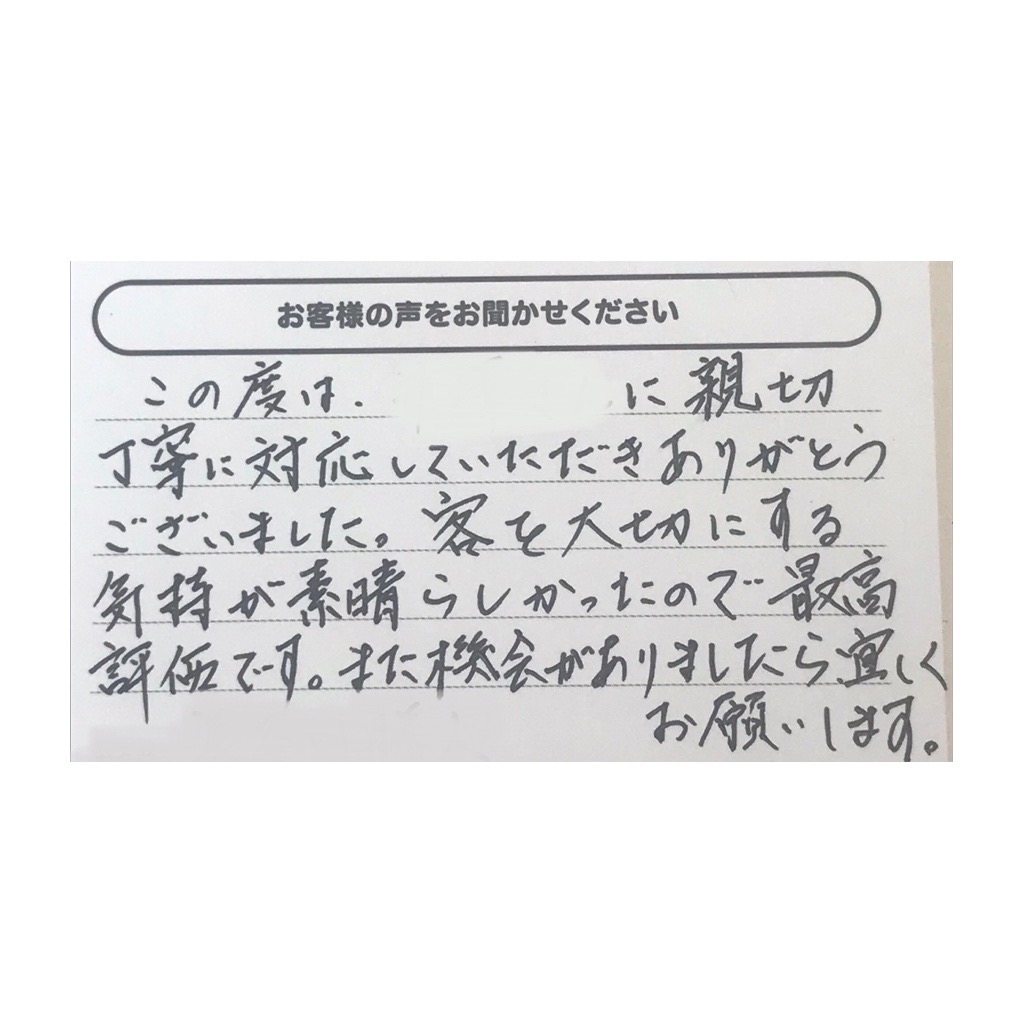 お客様の声をお聞かせください
この度は、 に親切
丁寧に対応していただきありがとう
ございました。客を大切にする
気持が素晴らしかったので最高
評価です。また機会がありましたら宜しく
お願いします。